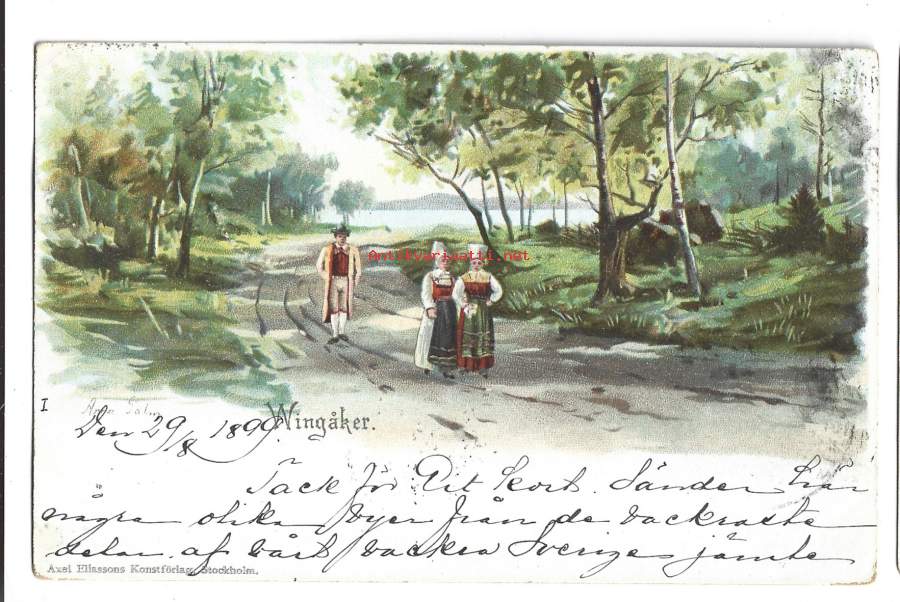 Antikvariaatti.net
I
Anna Palm
Wingåker.
Den 29/8 1899.
Tack för Ert kort. Sänder här
några olika vyer från de vackraste
delar af vårt vackra Sverige jämte
Axel Eliassons Konstförlag, Stockholm.